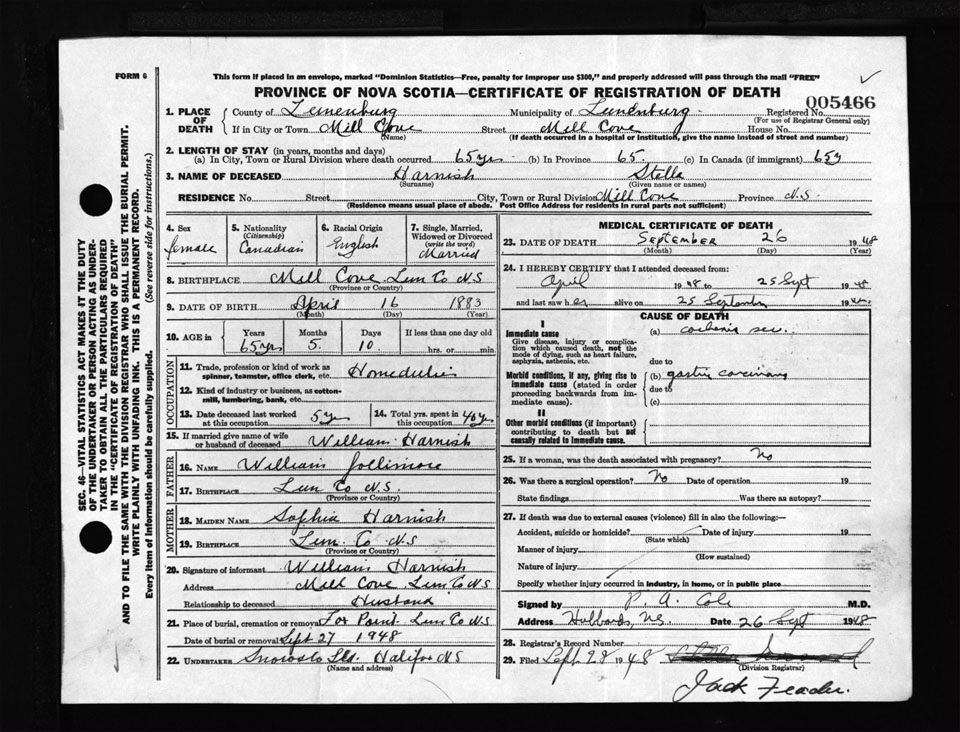 FORM 6
This form if placed in an envelope, marked "Dominion Statistics—Free, penalty for improper use $300," and properly addressed will pass through the mail "FREE"
PROVINCE OF NOVA SCOTIA—CERTIFICATE OF REGISTRATION OF DEATH
005466
1. PLACE OF DEATH County of Lunenburg Municipality of Lunenburg Registered No.
(For use of Registrar General only)
If in City or Town Mill Cove Street Mill Cove House No.
(Name) (If death occurred in a hospital or institution, give name instead of street and number)
2. LENGTH OF STAY (in years, months and days)
(a) In City, Town or Rural Division where death occurred 65 yrs (b) In Province 65. (c) In Canada (if immigrant) 65y
3. NAME OF DECEASED Harnish Stella
(Surname) (Given name or names)
RESIDENCE No. Street City, Town or Rural Division Mill Cove Province N.S.
(Residence means usual place of abode. Post Office Address for residents in rural parts not sufficient)
4. Sex
female
5. Nationality
(Citizenship)
Canadian
6. Racial Origin
English
7. Single, Married, Widowed or Divorced
(write the word)
Married
8. BIRTHPLACE Mill Cove Lun Co N S
(Province or Country)
9. DATE OF BIRTH April 16 1883
(Month) (Day) (Year)
10. AGE in
Years Months Days If less than one day old
65 yrs 5. 10 hrs. or min.
OCCUPATION
11. Trade, profession or kind of work as spinner, teamster, office clerk, etc. Homeduties
12. Kind of industry or business, as cotton-mill, lumbering, bank, etc.
13. Date deceased last worked at this occupation 5 yr
14. Total yrs. spent in this occupation 40 yr
15. If married give name of wife or husband of deceased William Harnish
FATHER
16. NAME William Jollimore
17. BIRTHPLACE Lun Co N.S.
(Province or Country)
MOTHER
18. MAIDEN NAME Sophia Harnish
19. BIRTHPLACE Lun. Co N.S
(Province or Country)
20. Signature of informant William Harnish
Address Mill Cove Lun Co N S
Relationship to deceased Husband
21. Place of burial, cremation or removal Fox Point Lun Co N S
Date of burial or removal Sept 27 1948
22. UNDERTAKER Halifax N S
(Name and address)
MEDICAL CERTIFICATE OF DEATH
23. DATE OF DEATH September 26 1948
(Month) (Day) (Year)
24. I HEREBY CERTIFY that I attended deceased from:
April 1948 to 25 Sept 1948
and last saw her alive on 25 September 19
CAUSE OF DEATH
I
Immediate cause
Give disease, injury or complication which caused death, not the mode of dying, such as heart failure, asphyxia, asthenia, etc.
(a) sec.
due to
Morbid conditions, if any, giving rise to immediate cause (stated in order proceeding backwards from immediate cause).
(b) gastric
due to
(c)
II
Other morbid conditions (if important) contributing to death but not causally related to immediate cause.
25. If a woman, was the death associated with pregnancy? No
26. Was there a surgical operation? No Date of operation 19
State findings Was there an autopsy?
27. If death was due to external causes (violence) fill in also the following:—
Accident, suicide or homicide? Date of injury 19
(State which)
Manner of injury
(How sustained)
Nature of injury
Specify whether injury occurred in industry, in home, or in public place
Signed by P. A. Cole M.D.
Address Hubbards, N.S. Date 26 Sept 1948
28. Registrar's Record Number
29. Filed Sept 28 1948
(Division Registrar)
Jack Feader.
SEC. 46—VITAL STATISTICS ACT MAKES IT THE DUTY
OF THE UNDERTAKER OR PERSON ACTING AS UNDER-
TAKER TO OBTAIN ALL THE PARTICULARS REQUIRED
IN THE "CERTIFICATE OF REGISTRATION OF DEATH"
AND TO FILE THE SAME WITH THE DIVISION REGISTRAR WHO SHALL ISSUE THE BURIAL PERMIT.
WRITE PLAINLY WITH UNFADING INK. THIS IS A PERMANENT RECORD.
Every item of information should be carefully supplied. (See reverse side for instructions.)